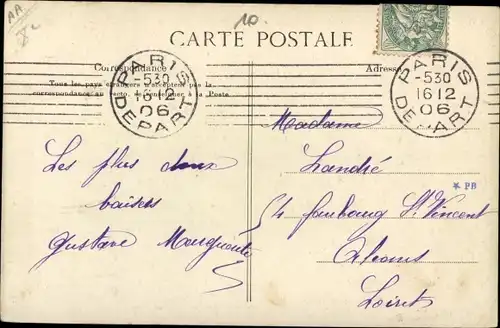 AA
10
CARTE POSTALE
Correspondance
Adresse
Tous les pays étrangers n'acceptent pas la
correspondance au recto, se renseigner à la Poste
PARIS
-5 30
16 12
06
DEPART
PARIS
-5 30
16 12
06
DEPART
Les plus doux
baisers
Gustave Marguerite
Madame
Landré
* PB
54 faubourg St. Vincent
Orleans
Loiret